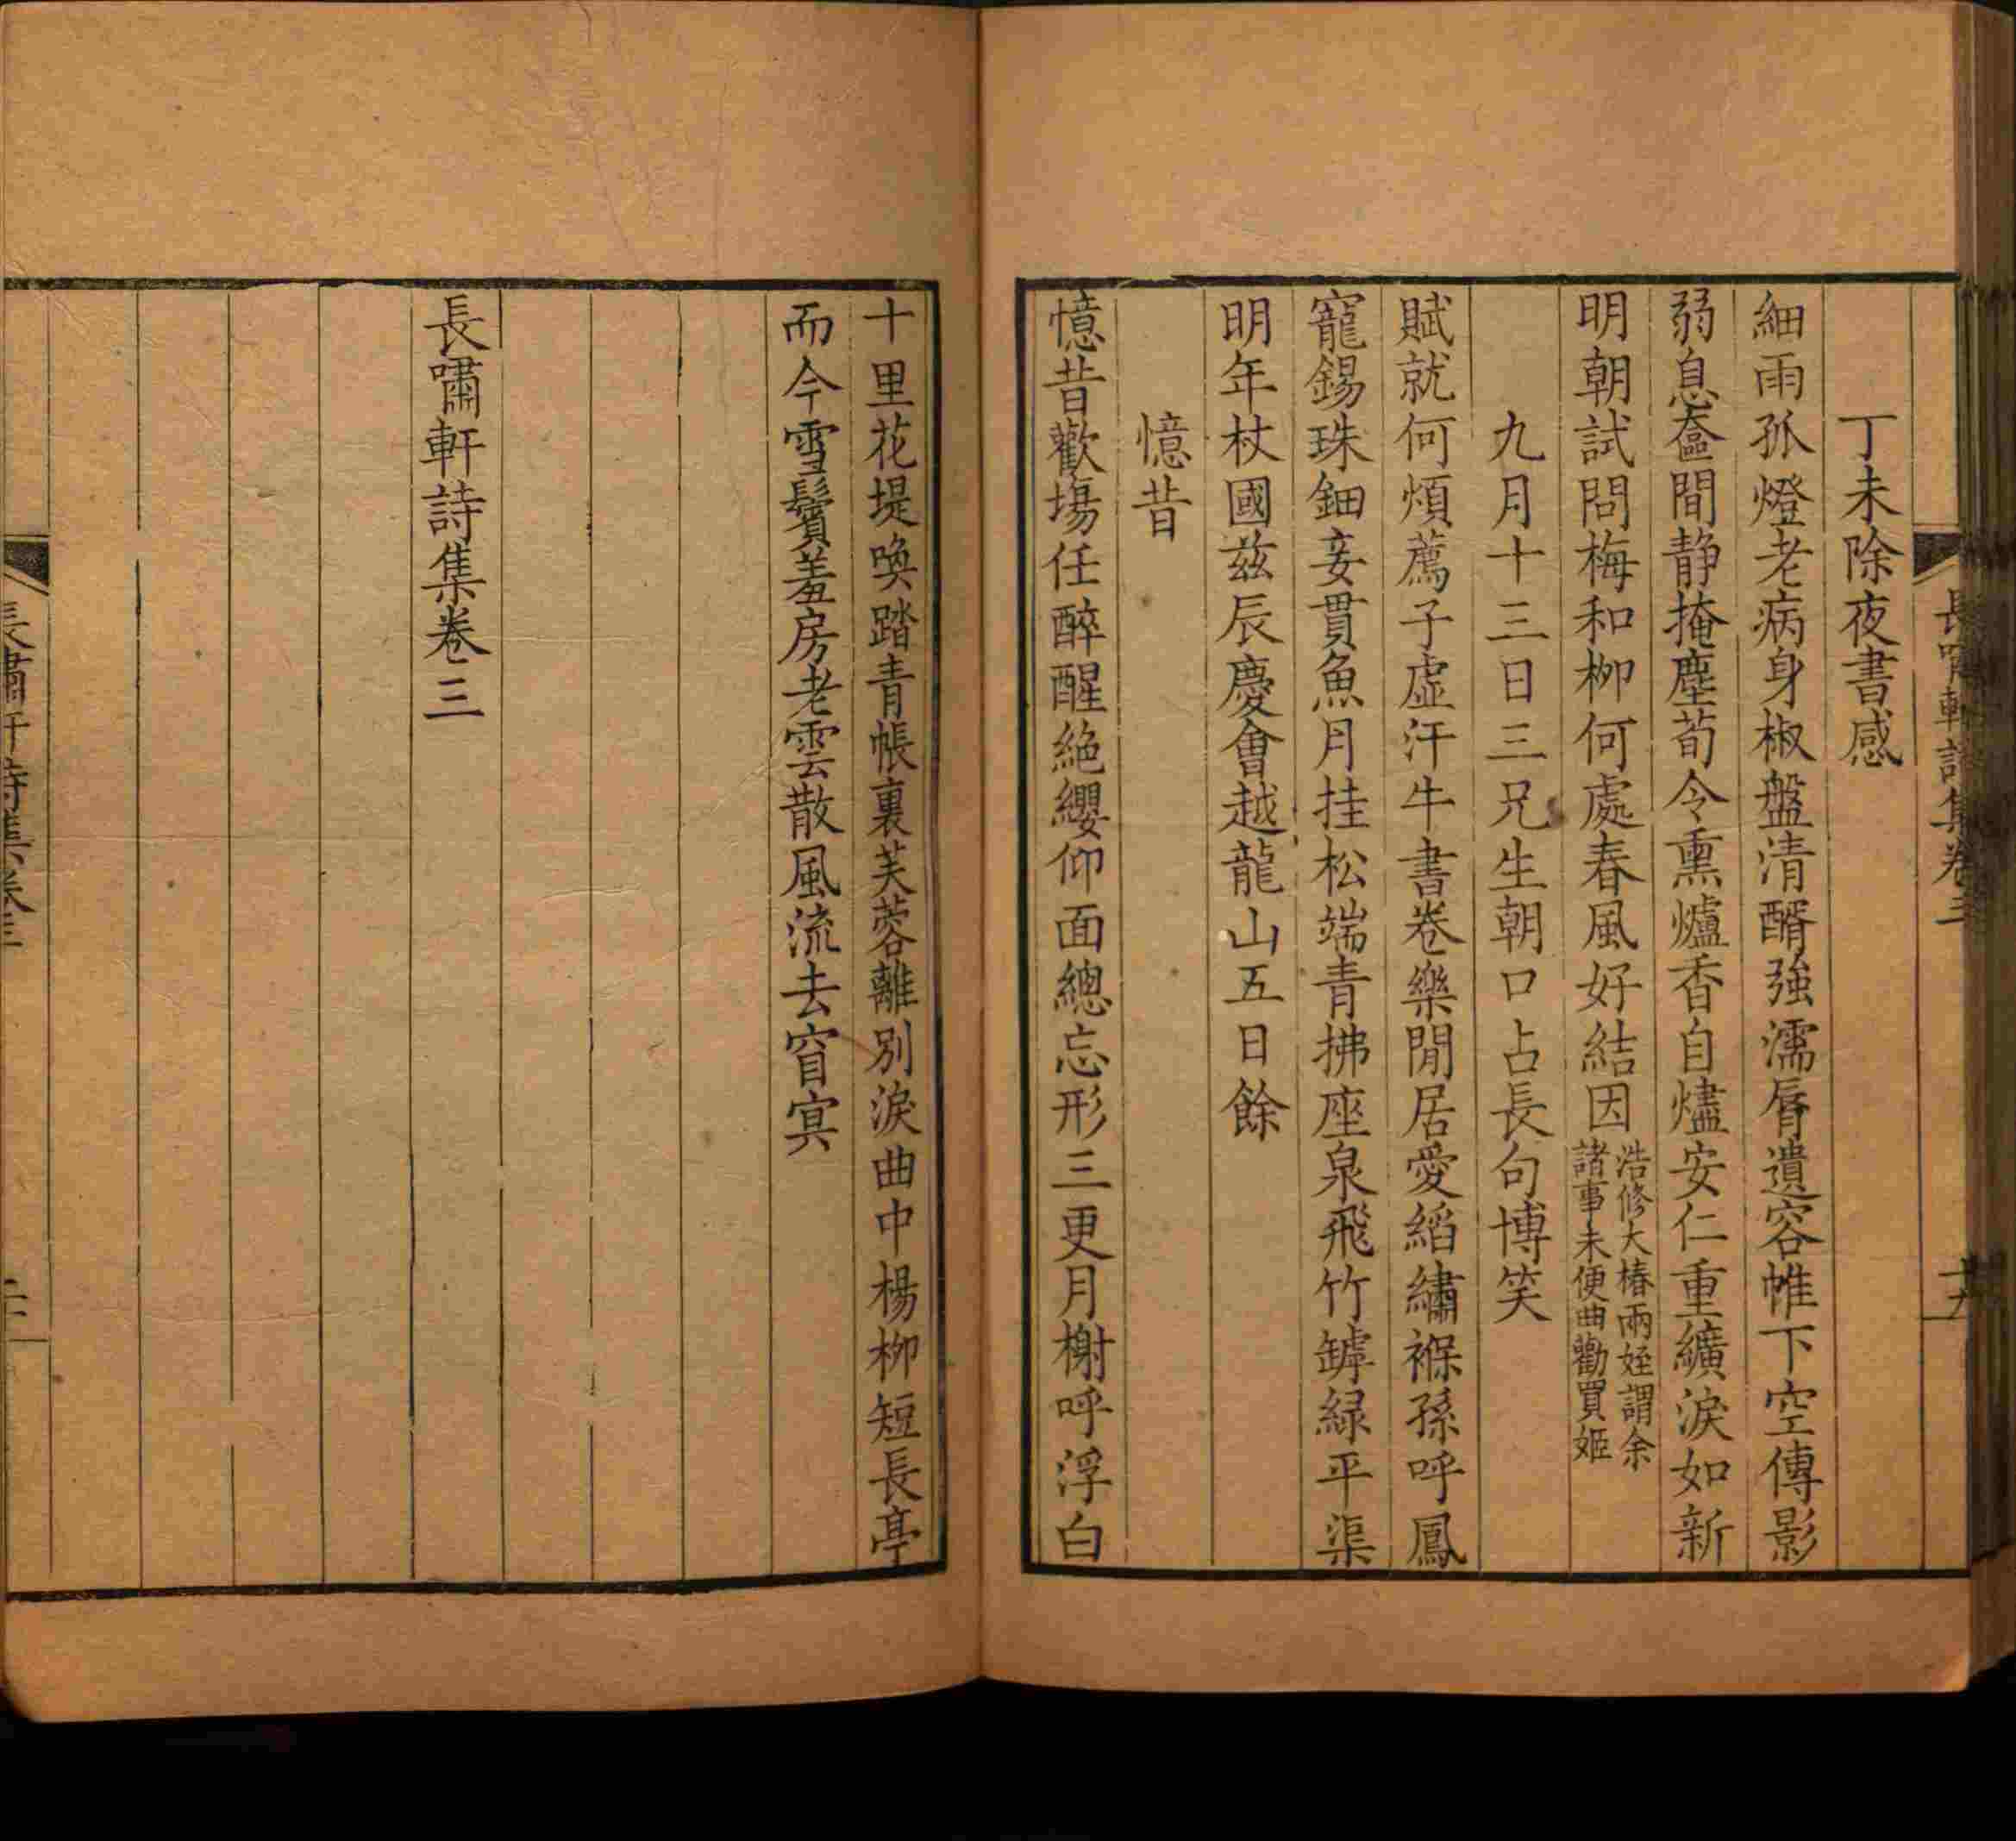 丁未除夜書感
細雨孤燈老病身椒盤清醑強濡脣遺容帷下空傳影
弱息奩間静掩塵荀令熏爐香自燼安仁重纊淚如新
明朝試問梅和柳何處春風好結因浩修大椿兩姪謂余
諸事未便曲勸買姬
九月十三日三兄生朝口占長句博笑
賦就何煩薦子虛汗牛書卷樂閒居愛縚繡褓孫呼鳳
寵錫珠鈿妾貫魚月挂松端青拂座泉飛竹罅緑平渠
明年杖國兹辰慶會越龍山五日餘
憶昔
憶昔歡塲任醉醒絶纓仰面總忘形三更月榭呼浮白
十里花堤喚踏青帳裏芙蓉離別淚曲中楊柳短長亭
而今雪鬢羞房老雲散風流去窅冥
長嘯軒詩集卷三
長嘯軒詩集卷三
十九